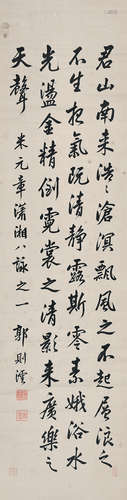 君山南来浩浩滄溟飄風之不起層浪之
不生夜氣既清静露斯零素娥浴水
光盪金精倒霓裳之清影来廣樂之
天聲
米元章瀟湘八詠之一
郭則澐